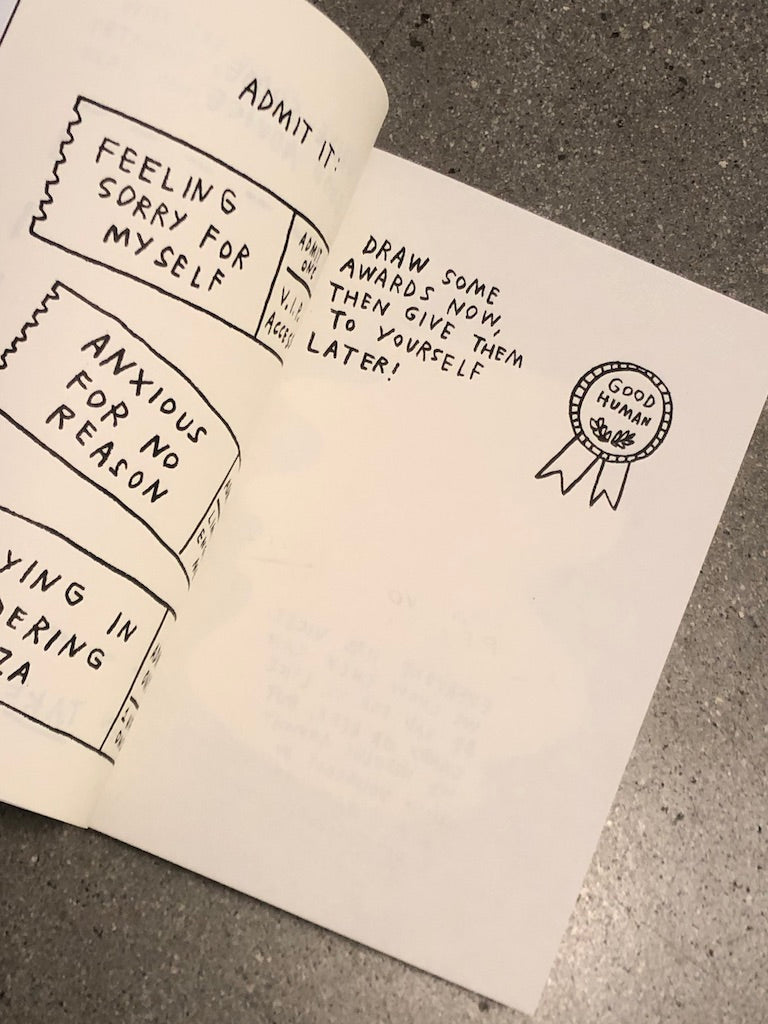 ADMIT IT:
FEELING
SORRY FOR
MYSELF
ADMIT
ONE
V.I.P.
ACCESS
ANXIOUS
FOR NO
REASON
YING IN
DERING
ZA
DRAW SOME
AWARDS NOW,
THEN GIVE THEM
TO YOURSELF
LATER!
GOOD
HUMAN